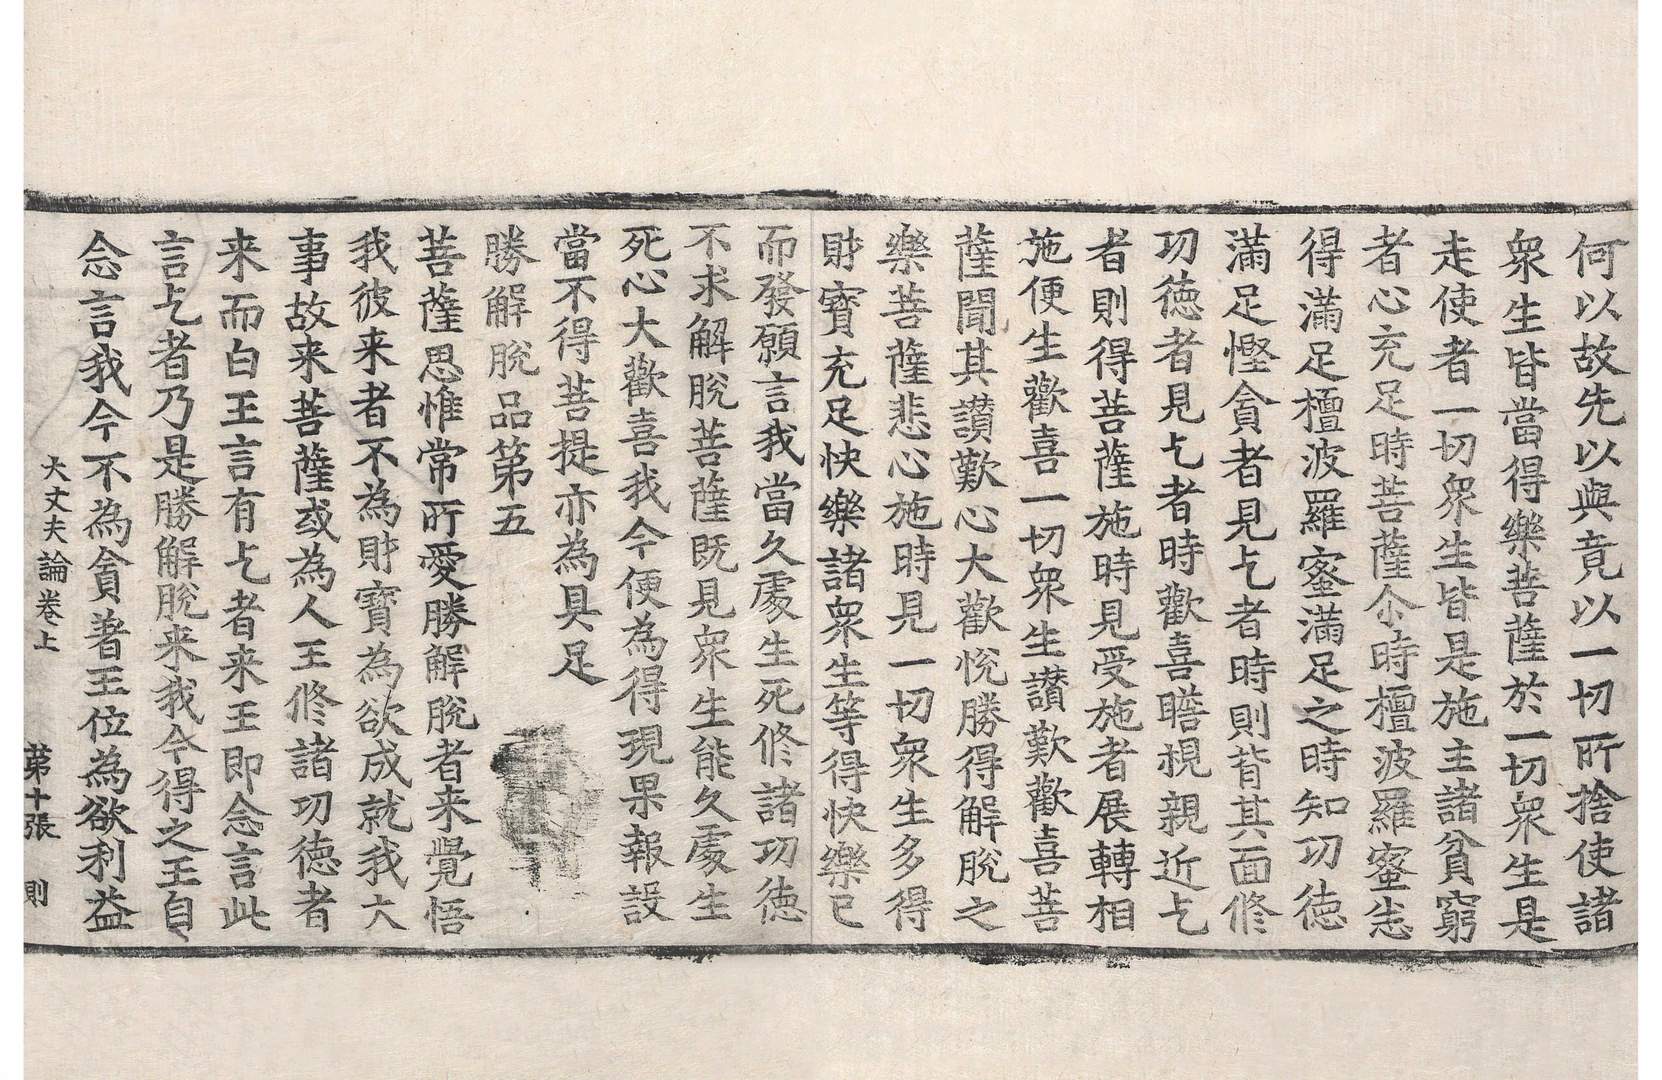 何以故先以與竟以一切所捨使諸
衆生皆當得樂菩薩於一切衆生是
走使者一切衆生皆是施主諸貧窮
者心充足時菩薩尒時檀波羅蜜悉
得滿足檀波羅蜜滿足之時知功德
滿足慳貪者見乞者時則背其面修
功德者見乞者時歡喜瞻視親近乞
者則得菩薩施時見受施者展轉相
施便生歡喜一切衆生讃歎歡喜菩
薩聞其讃歎心大歡悅勝得解脫之
樂菩薩悲心施時見一切衆生多得
財寶充足快樂諸衆生等得快樂已
而發願言我當久處生死修諸功德
不求解脫菩薩既見衆生能久處生
死心大歡喜我今便為得現果報設
當不得菩提亦為具足
勝解脫品第五
菩薩思惟常所愛勝解脫者来覺悟
我彼来者不為財寶為欲成就我大
事故来菩薩或為人王修諸功德者
来而白王言有乞者来王即念言此
言乞者乃是勝解脫来我今得之王自
念言我今不為貪著王位為欲利益
大丈夫論卷上 第十張 則